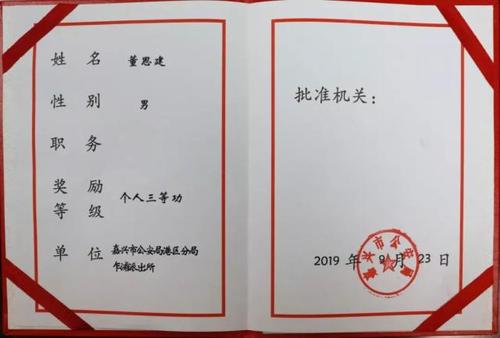 姓名 董思建
性别 男
职务
奖励
等级 个人三等功
单位 嘉兴市公安局港区分局
乍浦派出所
批准机关：
嘉兴市公安局
2019 年 9 月 23 日